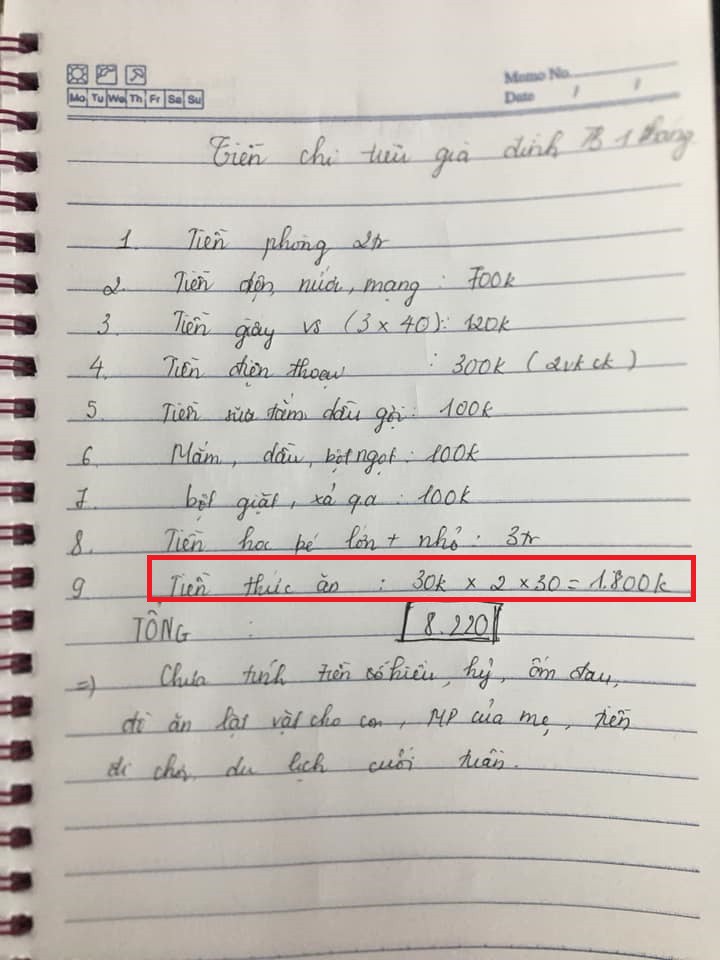 Memo No.
Mo Tu We Th Fr Sa Su
Date / /
Tiền chi tiêu gia đình 1 tháng
1. Tiền phòng 2tr
2. Tiền điện, nước, mạng : 700k
3. Tiền giấy vs (3 x 40): 120k
4. Tiền điện thoại : 300k (2vk ck)
5. Tiền sữa tắm, dầu gội : 100k
6. Mắm, dầu, bột ngọt : 100k
7. bột giặt, xả qa : 100k
8. Tiền học bé lớn + nhỏ : 3tr
9 Tiền thức ăn : 30k x 2 x 30 = 1.800k
TỔNG : 8.220
=) Chưa tính tiền có hiếu, hỷ, ốm đau,
đồ ăn lặt vặt cho con, MP của mẹ, tiền
đi chơi, du lịch cuối tuần.